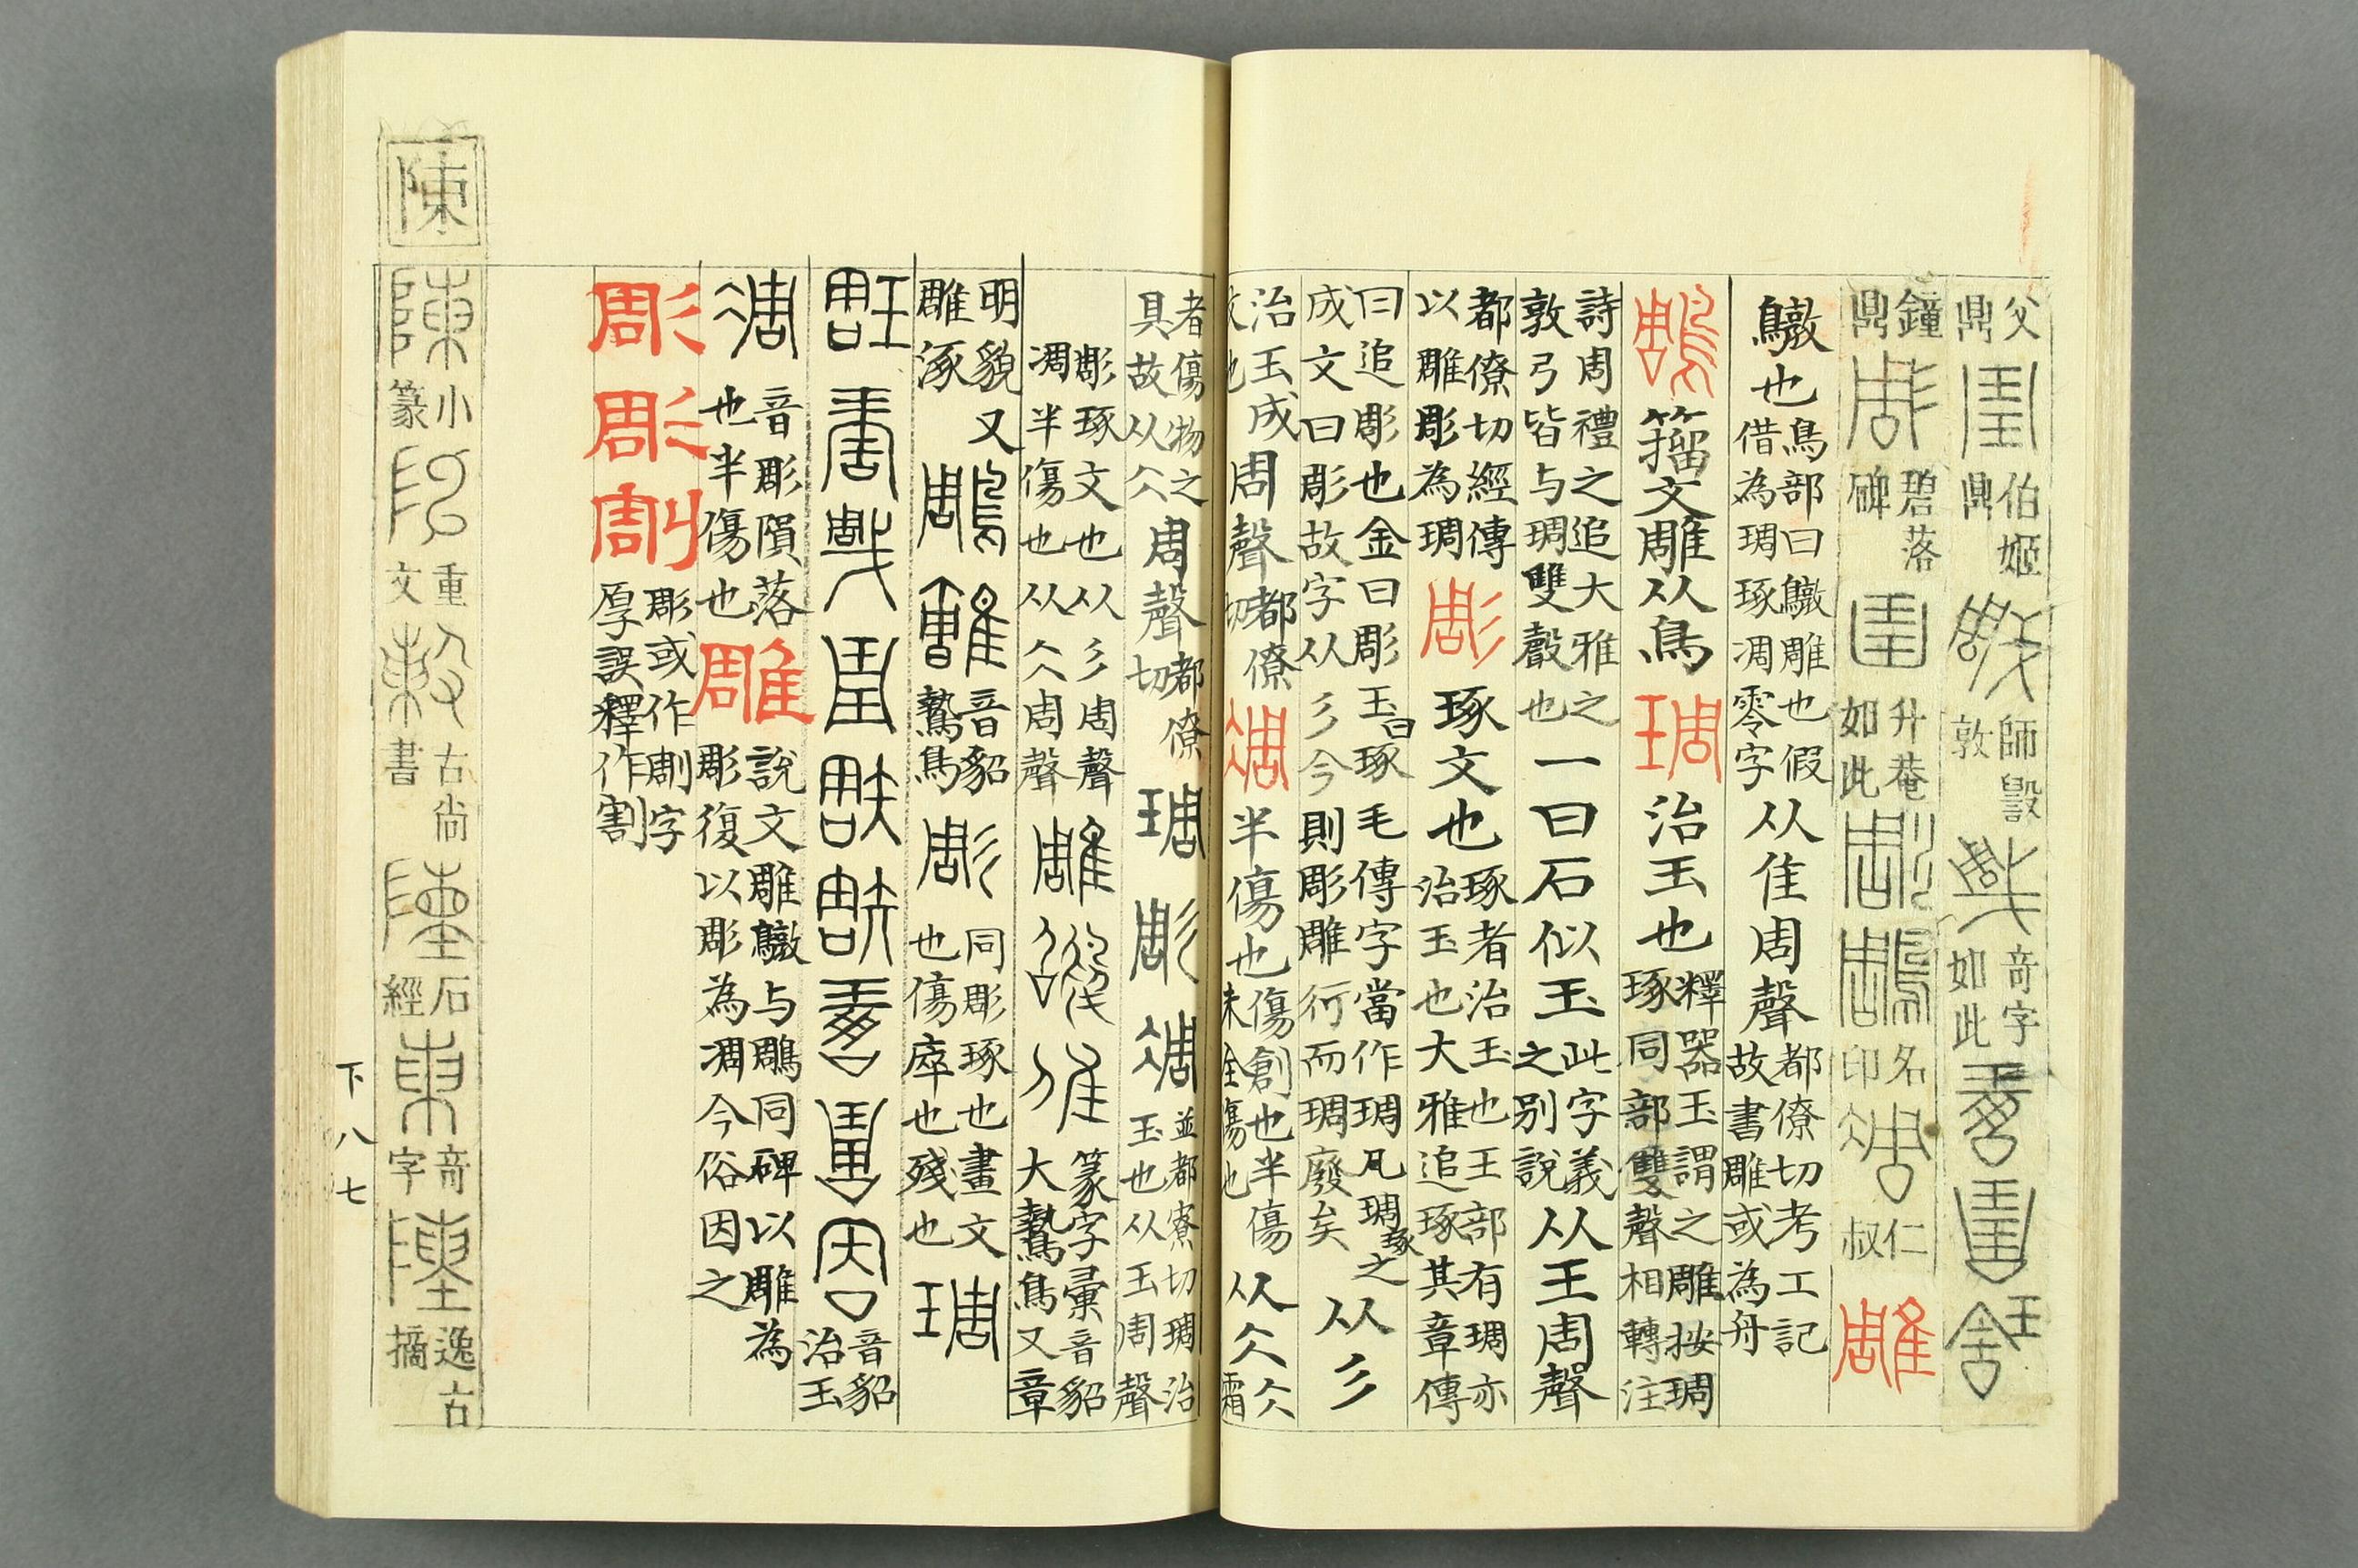 父鼎 伯姬鼎 師毀敦 奇字如此
鐘鼎 碧落碑 升菴如此 名印 仁叔 雕
鷻也鳥部曰鷻雕也假借為琱琢凋零字从隹周聲都僚切考工記故書雕或為舟
鵰籀文雕从鳥琱治玉也釋器玉謂之雕按琱琢同部雙聲相轉注
詩周禮之追大雅之敦弓皆与琱雙聲也一曰石似玉此字義之別說从王周聲
都僚切經傳以雕彫為琱彫琢文也琢者治玉也王部有琱亦治玉也大雅追琢其章傳
曰追彫也金曰彫玉曰琢毛傳字當作琱凡琱琢之成文曰彫故字从彡今則彫雕行而琱廢矣从彡
治玉成周聲都僚切凋半傷也傷創也半傷未全傷也从仌仌霜
者傷物之具故从仌周聲都僚切琱彫凋並都寮切琱治玉也从玉周聲
彫琢文也从彡周聲凋半傷也从仌周聲雕 篆字彙音貂大鷙鳥又章
明貌又雕琢鵰 音貂鷙鳥彫同彫琢也畫文也傷瘁也殘也琱
音貂治玉
凋音彫隕落也半傷也雕說文雕鷻与鵰同碑以雕為彫復以彫為凋今俗因之
彫彫剮彫或作剮字厚誤釋作割
陳
陳小篆 重文 古尚書 石經 奇字 逸古摘
下八七